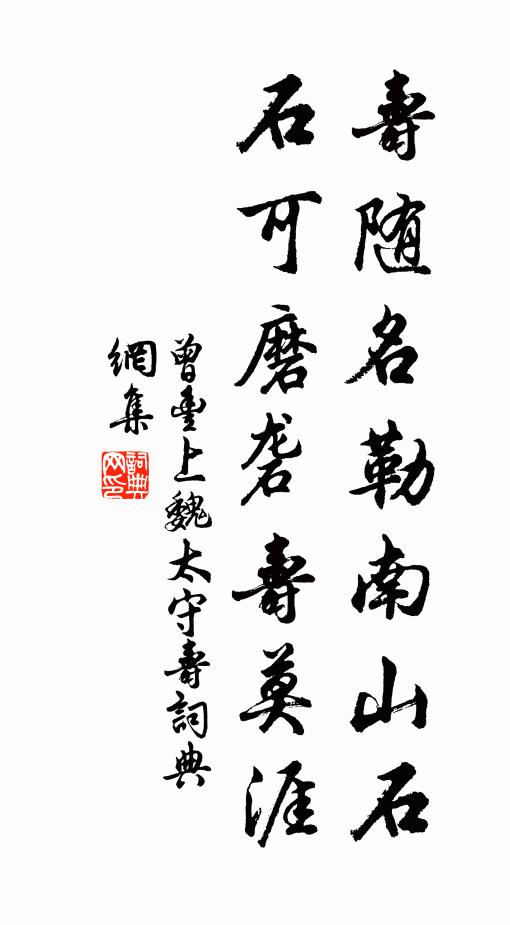 壽随名勒南山石
石可磨砻壽莫涯
曾豐上魏太守壽詞典
網集
詞典网印